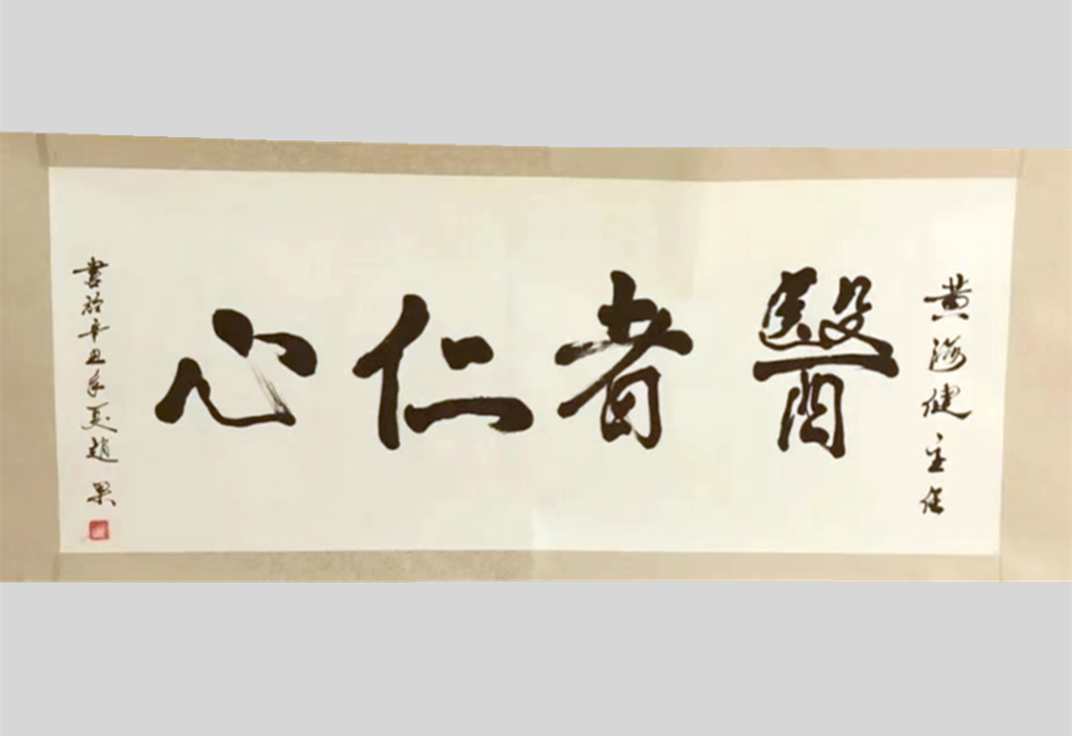 黄海健主任
醫者仁心
書於辛丑年夏趙果